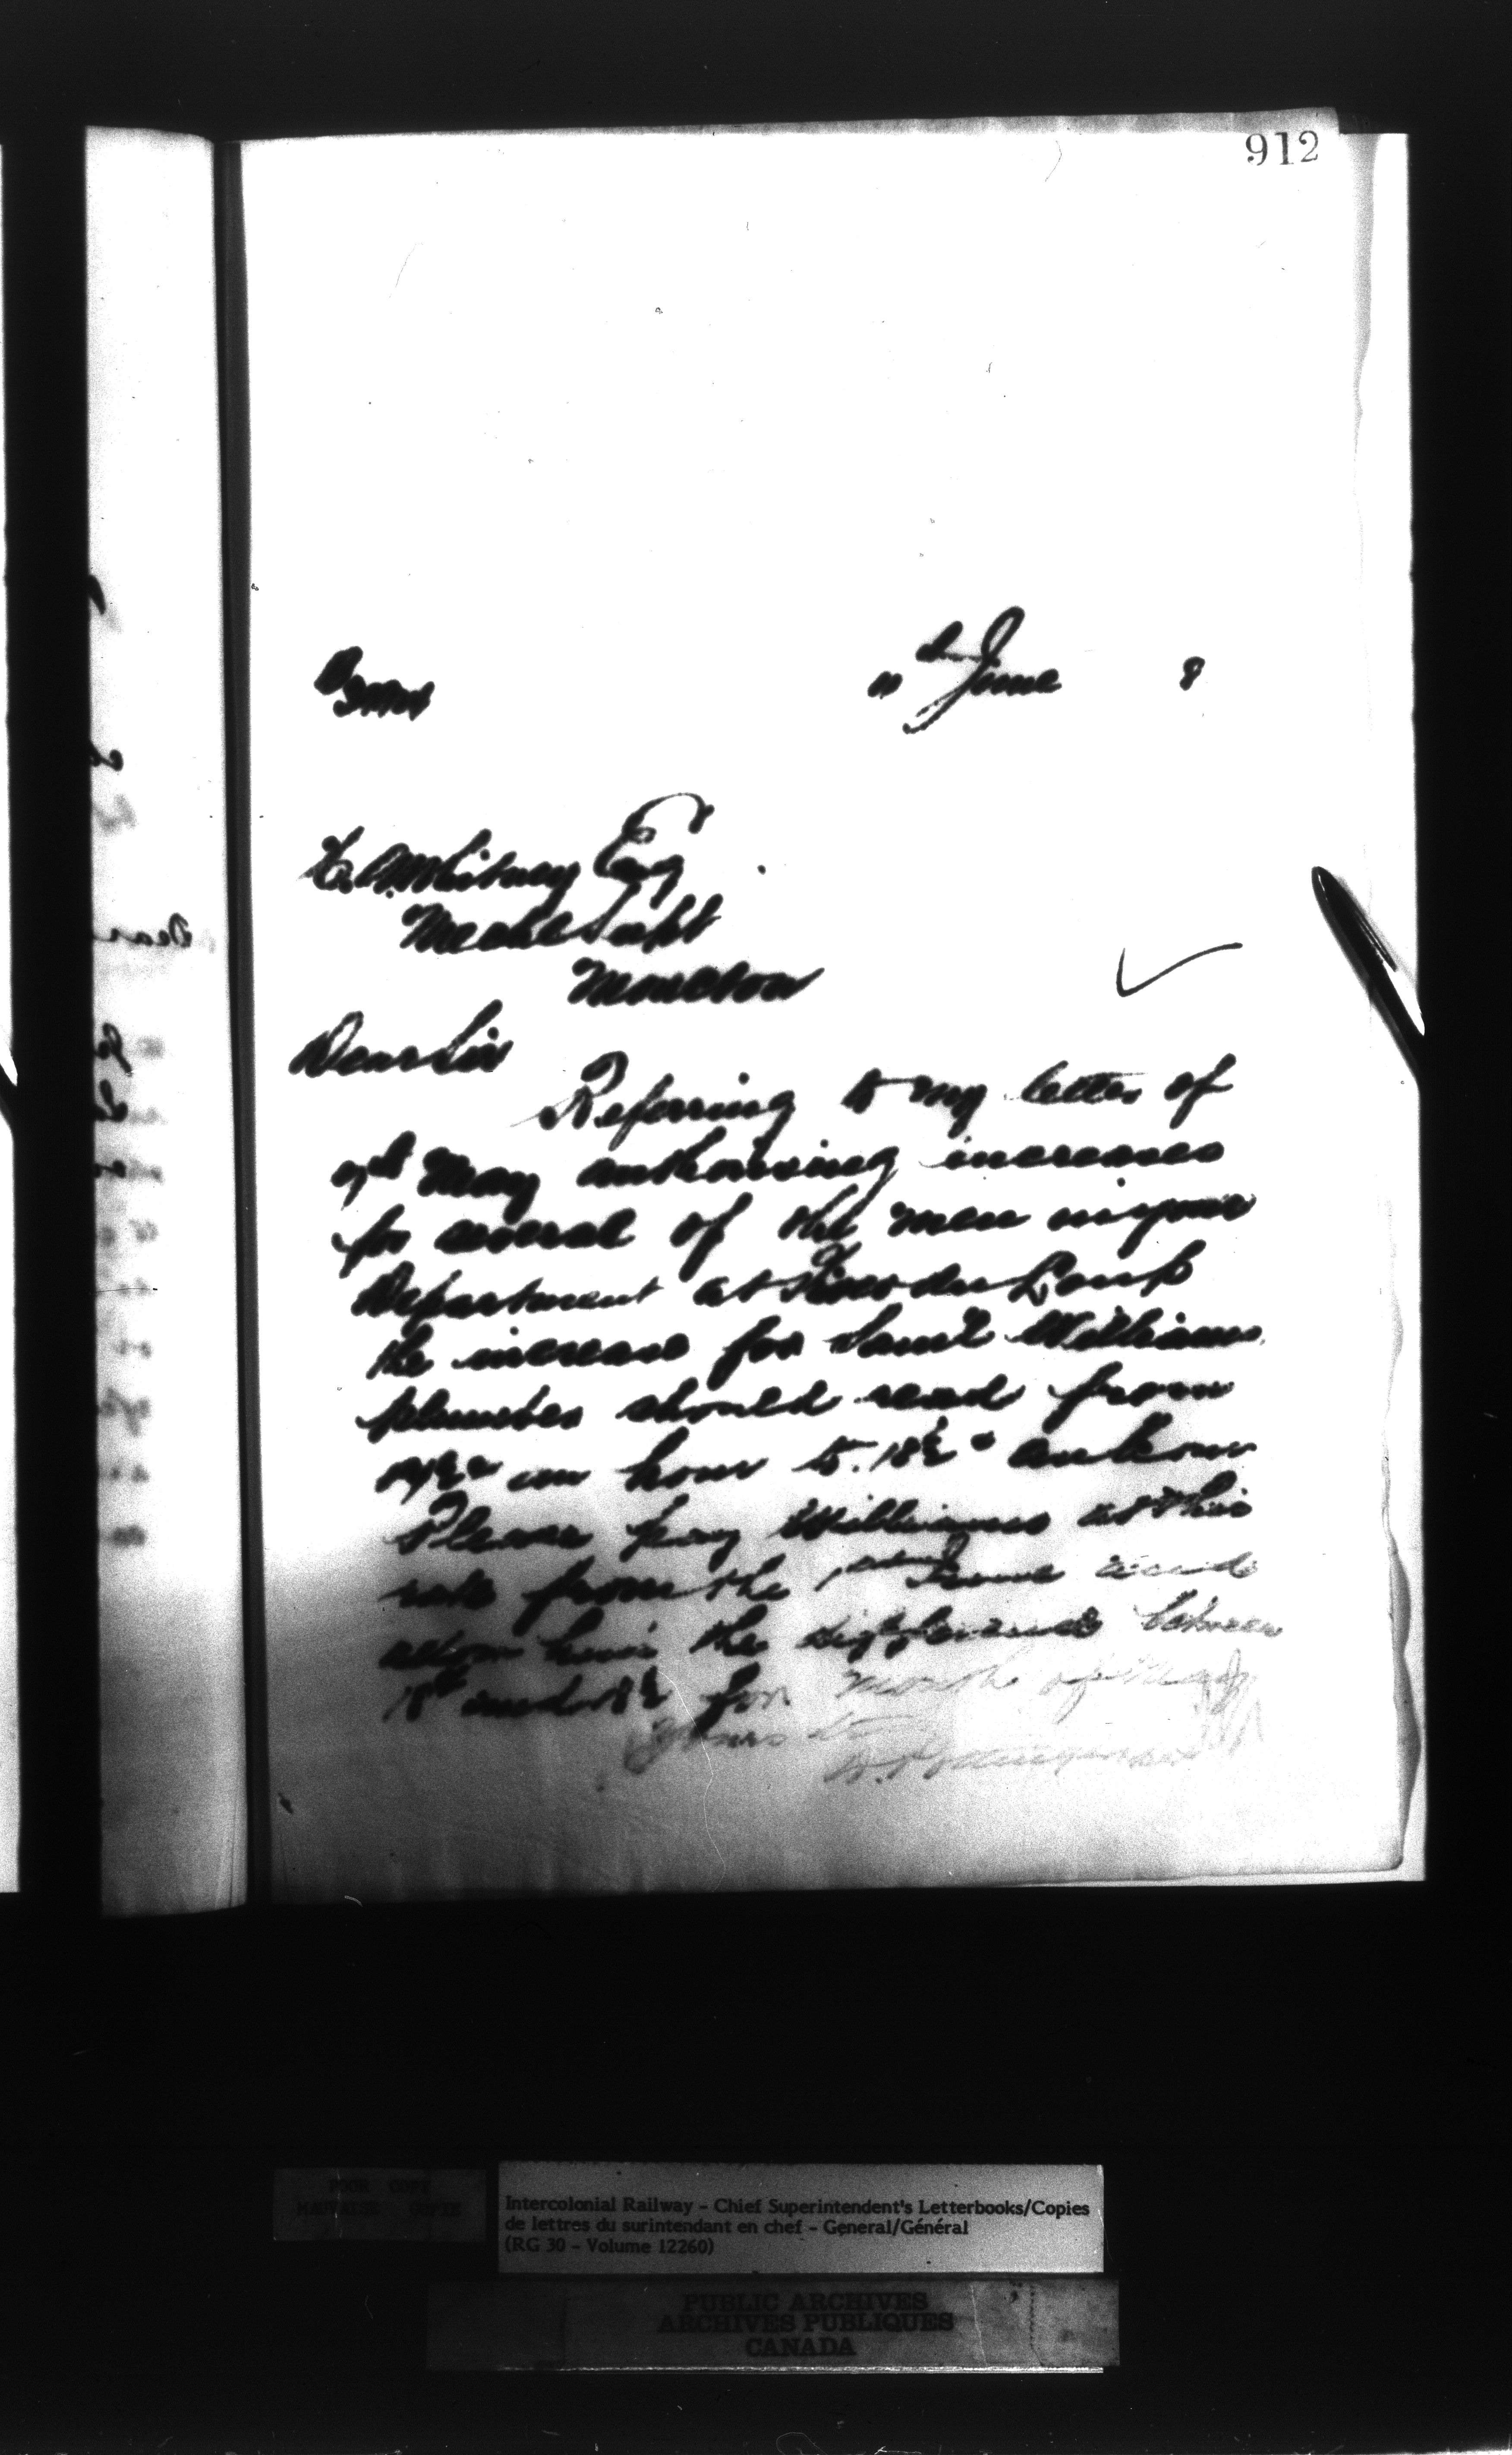 912
11th June 8
H.A. Whitney Esq
Mechl Supt
Moncton
Dear Sir
Referring to my letter of
May authorising increases
for several of the men in your
Department at River du Loup
the increase for Saml Williams
plumber should read from
an hour to 18½ an hour
Please pay Williams at this
rate from the 1st June and
allow him the difference between
18 and 18½ for month of May
Yours &c
D. Pottinger
Intercolonial Railway - Chief Superintendent's Letterbooks/Copies
de lettres du surintendant en chef - General/Général
(RG 30 - Volume 12260)
POOR COPY
MAUVAISE COPIE
PUBLIC ARCHIVES
ARCHIVES PUBLIQUES
CANADA